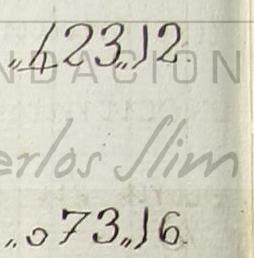 „423„12.
NDACIÓN
erlos Slim
„073„16.